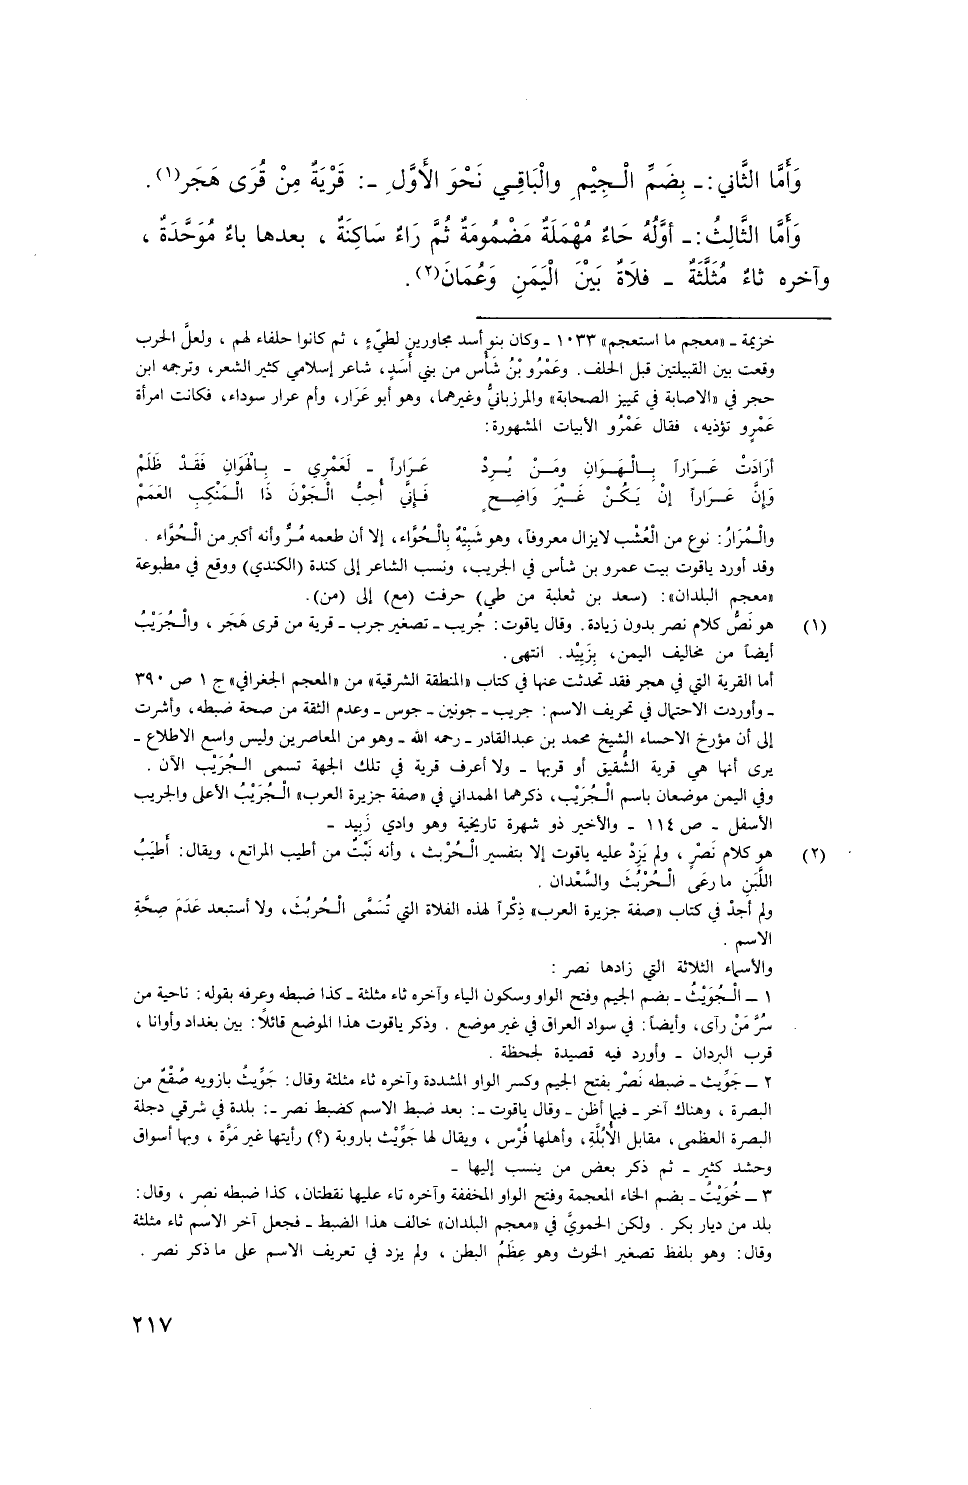 وَأَمَّا الثَّاني: ـ بِضَمِّ الْـجِيْمِ والْبَاقِـي نَحْوَ الْأَوَّلِ ـ: قَرْيَةٌ مِنْ قُرَى هَجَر(١).
وَأَمَّا الثَّالِثُ: ـ أوَّلُهُ حَاءٌ مُهْمَلَةٌ مَضْمُومَةٌ ثُمَّ رَاءٌ سَاكِنَةٌ ، بعدها باءٌ مُوَحَّدَةٌ ،
وآخره ثاءٌ مُثَلَّثَةٌ ـ فلَاةٌ بَيْنَ الْيَمَنِ وَعُمَانَ(٢).
خزيمة ـ «معجم ما استعجم» ١٠٣٣ ـ وكان بنو أسد مجاورين لطيّءٍ ، ثم كانوا حلفاء لهم ، ولعلَّ الحرب
وقعت بين القبيلتين قبل الحلف. وعَمْرُو بْنُ شَأْس من بني أَسَدٍ، شاعر إسلامي كثير الشعر، وترجمه ابن
حجر في «الاصابة في تمييز الصحابة» والمرزبانيُّ وغيرهما، وهو أبو عَرَار، وأم عرار سوداء، فكانت امرأة
عَمْرٍو تؤذيه، فقال عَمْرُو الأبيات المشهورة:
أرَادَتْ عَـرَاراً بِـالْـهَـوَانِ ومَـنْ يُـرِدْ عَـرَاراً ـ لَعَمْرِي ـ بِـالْهَوَانِ فَقَـدْ ظَلَمْ
وَإِنَّ عَـرَاراً إنْ يَـكُـنْ غَـيْرَ وَاضِـحٍ فَـإِنَّي أُحِبُّ الْـجَوْنَ ذَا الْـمَنْكِبِ العَمَمْ
والْـمُرَارُ: نوع من الْعُشْب لايزال معروفاً، وهو شَبِيْهٌ بِالْـحُوَّاء، إلا أن طعمه مُـرٌّ وأنه أكبر من الْـحُوَّاء .
وقد أورد ياقوت بيت عمرو بن شأس في الجريب، ونسب الشاعر إلى كندة (الكندي) ووقع في مطبوعة
«معجم البلدان»: (سعد بن ثعلبة من طي) حرفت (مع) إلى (من).
(١) هو نَصُّ كلام نصر بدون زيادة. وقال ياقوت: جُريب ـ تصغير جرب ـ قرية من قرى هَجَر ، والْـجُرَيْبُ
أيضاً من مخاليف اليمن، بِزَبِيْد. انتهى.
أما القرية التي في هجر فقد تحدثت عنها في كتاب «المنطقة الشرقية» من «المعجم الجغرافي» ج ١ ص ٣٩٠
ـ وأوردت الاحتمال في تحريف الاسم: جريب ـ جونين ـ جوس ـ وعدم الثقة من صحة ضبطه، وأشرت
إلى أن مؤرخ الاحساء الشيخ محمد بن عبدالقادر ـ رحمه الله ـ وهو من المعاصرين وليس واسع الاطلاع ـ
يرى أنها هي قرية الشُّفيق أو قربها ـ ولا أعرف قرية في تلك الجهة تسمى الـجُرَيْب الآن .
وفي اليمن موضعان باسم الْـجُرَيْب، ذكرهما الهمداني في «صفة جزيرة العرب» الْـجُرَيْبُ الأعلى والجريب
الأسفل ـ ص ١١٤ ـ والأخير ذو شهرة تاريخية وهو وادي زَبِيد ـ
(٢) هو كلام نَصْرٍ ، ولم يَزِدْ عليه ياقوت إلا بتفسير الْـحُرْبث ، وأنه نَبْتٌ من أطيب المراتع، ويقال: أَطيَبُ
اللَّبَنِ ما رعَى الْـحُرْبُثَ والسَّعْدان .
ولم أجدْ في كتاب «صفة جزيرة العرب» ذِكْراً لهذه الفلاة التي تُسَمَّى الْـحُربُثَ، ولا أستبعد عَدَمَ صِحَّةِ
الاسم .
والأسماء الثلاثة التي زادها نصر :
١ ـ الْـجُوَيْثُ ـ بضم الجيم وفتح الواو وسكون الياء وآخره ثاء مثلثة ـ كذا ضبطه وعرفه بقوله: ناحية من
سُرَّ مَنْ رآى، وأيضاً: في سواد العراق في غير موضع . وذكر ياقوت هذا الموضع قائلاً: بين بغداد وأوانا ،
قرب البردان ـ وأورد فيه قصيدة لجحظة .
٢ ـ جَوِّيث ـ ضبطه نَصرْ بفتح الجيم وكسر الواو المشددة وآخره ثاء مثلثة وقال: جَوِّيثُ بازويه صُقْعٌ من
البصرة ، وهناك آخر ـ فيما أظن ـ وقال ياقوت ـ: بعد ضبط الاسم كضبط نصر ـ: بلدة في شرقي دجلة
البصرة العظمى، مقابل الْأُبُلَّةِ، وأهلها فُرْس ، ويقال لها جَوِّيْث باروبة (؟) رأيتها غير مَرَّة ، وبها أسواق
وحشد كثير ـ ثم ذكر بعض من ينسب إليها ـ
٣ ـ خُوَيْتُ ـ بضم الخاء المعجمة وفتح الواو المخففة وآخره تاء عليها نقطتان، كذا ضبطه نصر ، وقال:
بلد من ديار بكر . ولكن الحمويَّ في «معجم البلدان» خالف هذا الضبط ـ فجعل آخر الاسم ثاء مثلثة
وقال: وهو بلفظ تصغير الخوث وهو عِظَمُ البطن ، ولم يزد في تعريف الاسم على ما ذكر نصر .
٢١٧